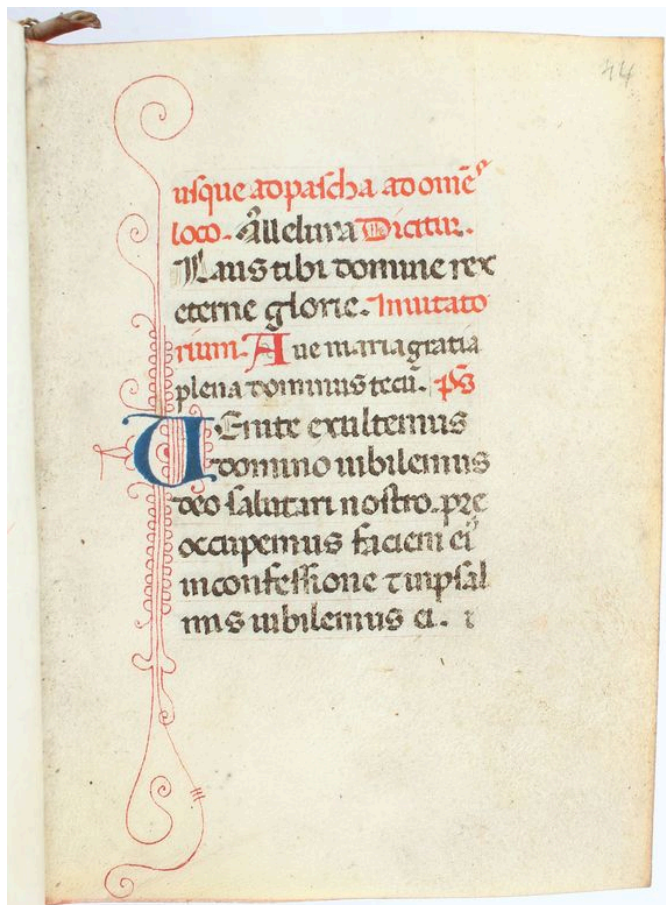 44
usque ad pascha ad om̄e
loco. Alleluya Dicitur.
Laus tibi domine rex
eterne glorie. Inuitato
rium. Aue maria gratia
plena dominus tecū. p̄s
Uenite exultemus
domino iubilemus
deo salutari nostro. pre
occupemus faciem eiꝰ
in confessione ⁊ in psal
mis iubilemus ei.